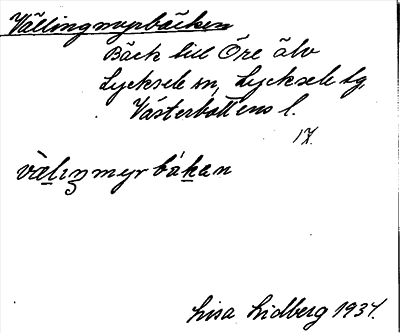 Vällingmyrbäcken
Bäck till Öre älv
Lycksele sn, Lycksele lg,
Västerbottens l.
17.
Lisa Lidberg 1934.